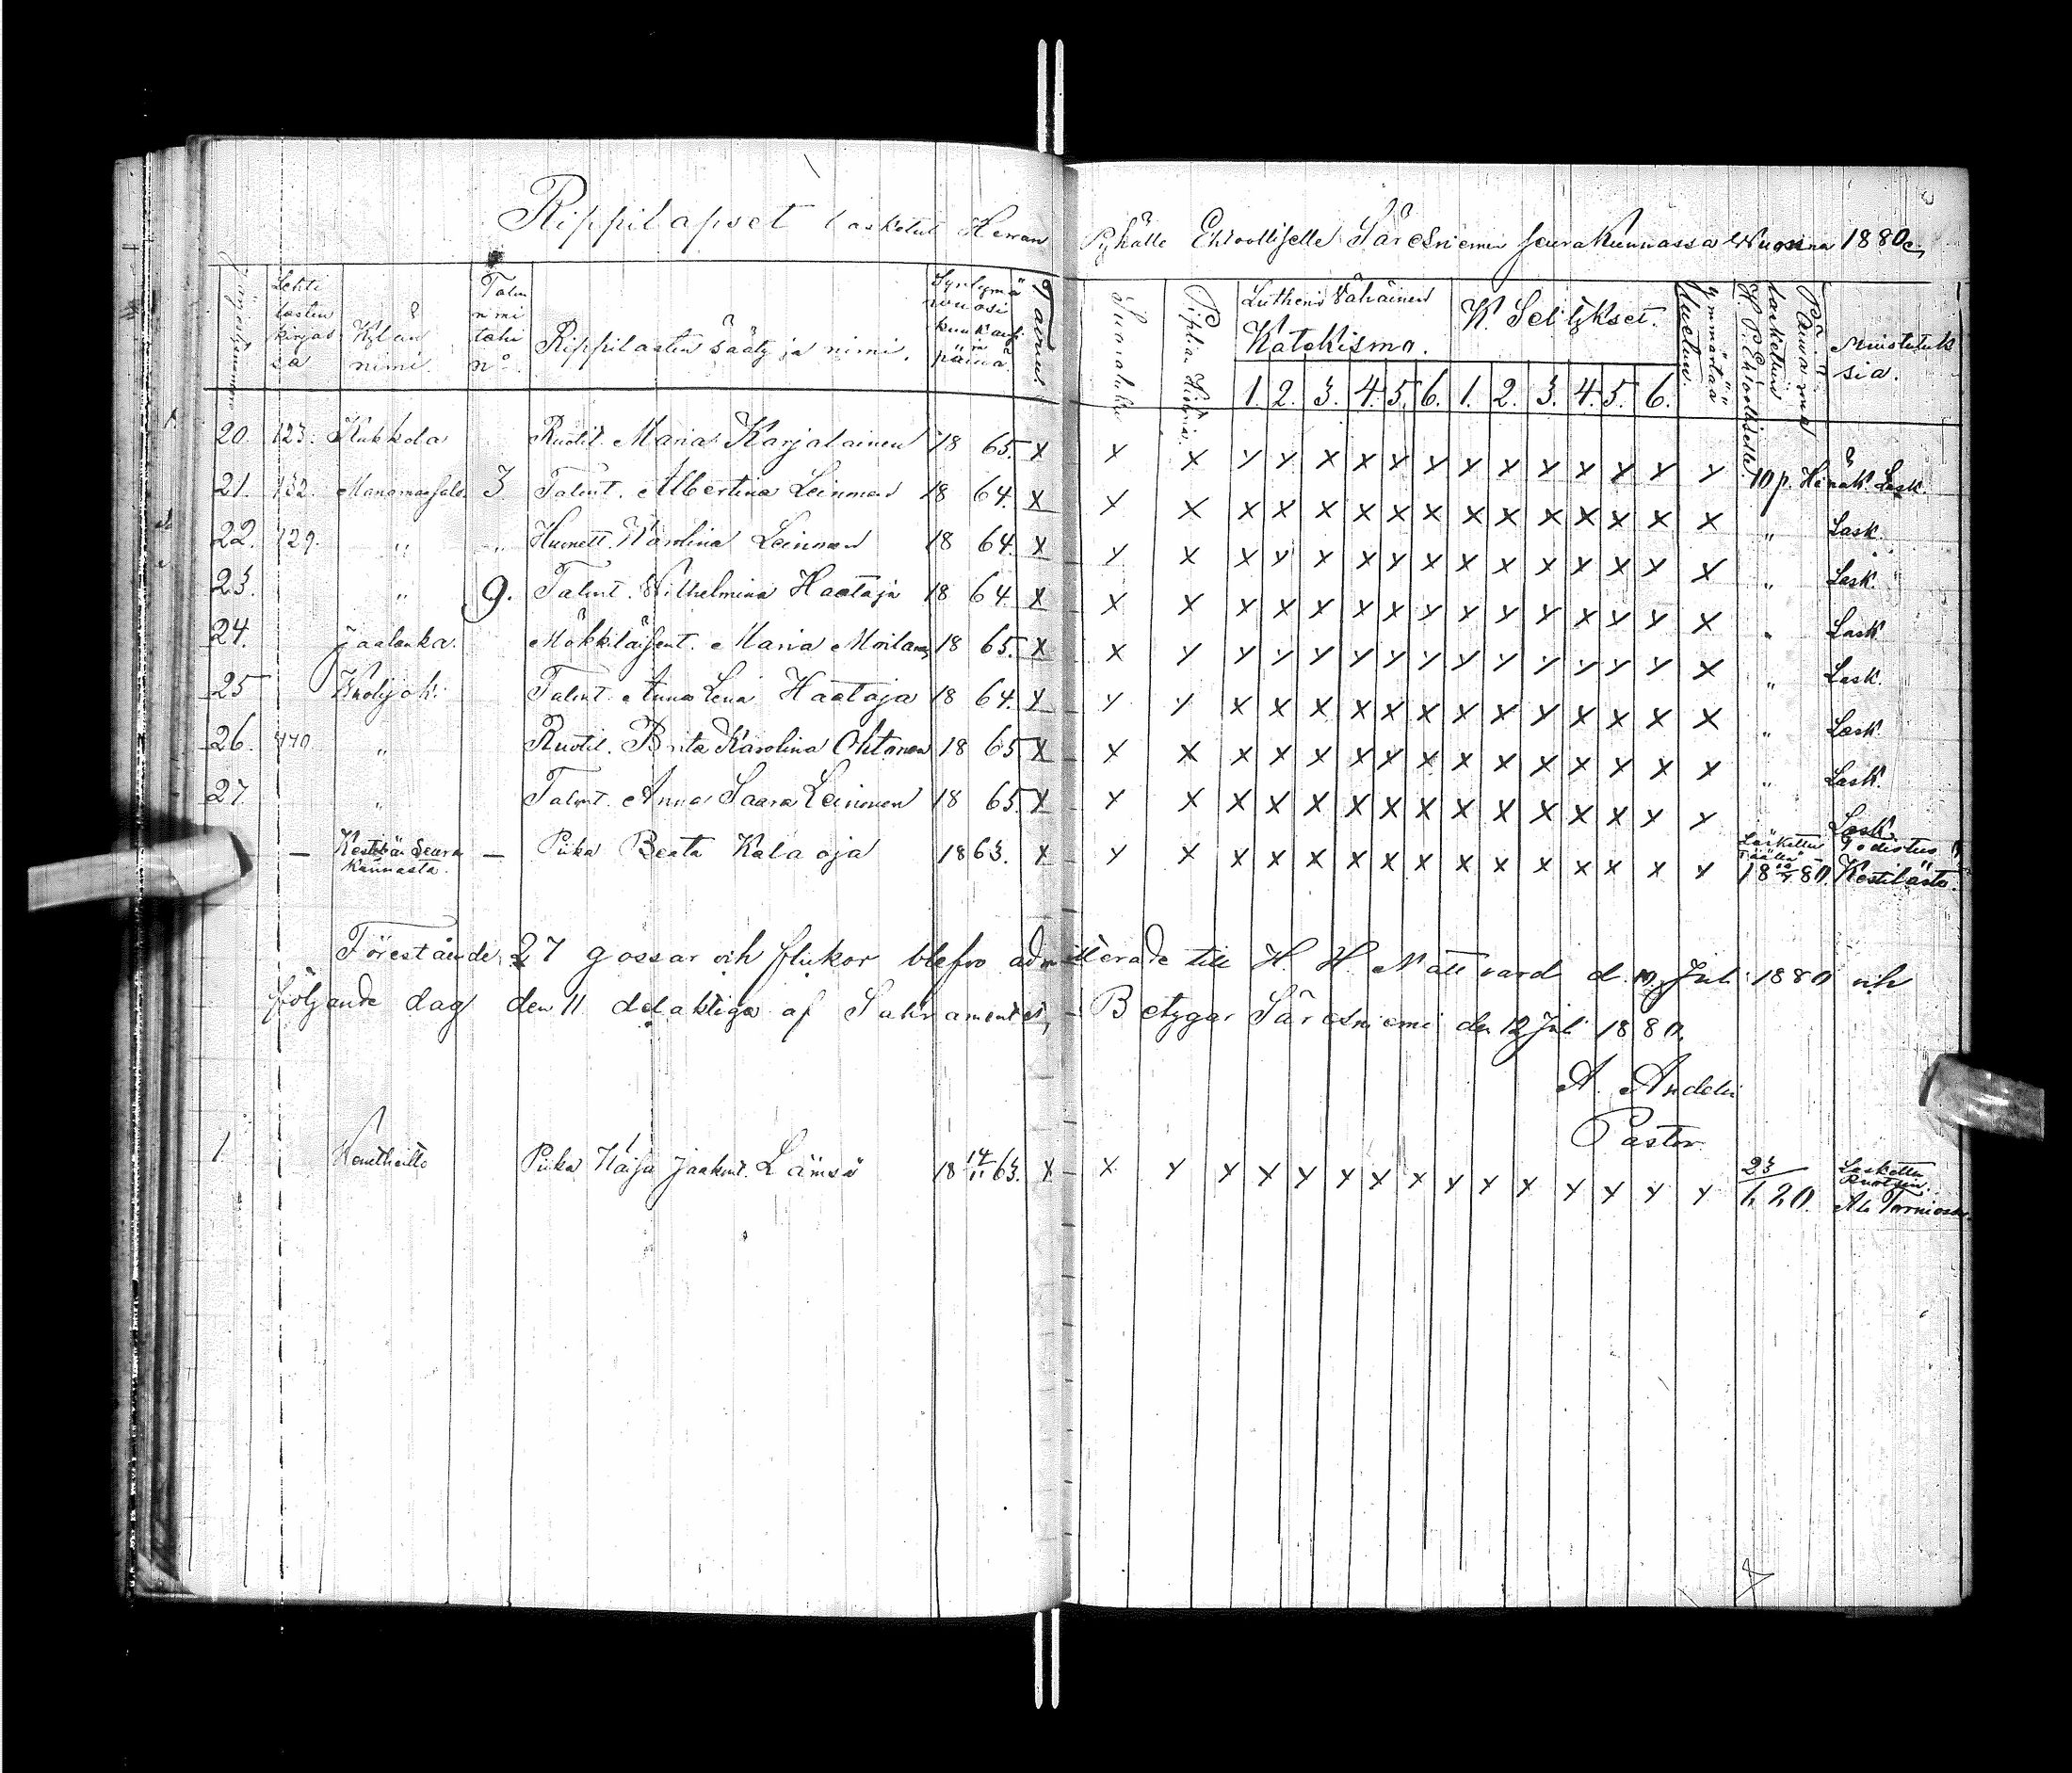 Rippilapset lasketut Herran Pyhälle Ehtoolliselle Säresniemen seurakunnassa Wuonna 1880
Lehti lasten kirjassa
Kylän nimi.
Talon nimi tahi no.
Rippilasten sääty ja nimi.
Syntymä vuosi kuukausi ja päivä
Lutherin Vähäinen Katekismo.
K. Selitykset.
1. 2. 3. 4. 5. 6. 1. 2. 3. 4. 5. 6.
Ymmärtää luetun.
Päiwä jona laskettiin H. P. Ehtoolliselle
Muistutuksia.
20. 123. Kukkola Ruotil. Maria Karjalainen 18 65. x x x x x x x x x x x x x x x x x 10 p. Heinäk. Lask.
21. 132. Manamansalo. 3 Talont. Albertina Leinonen 18 64. x x x x x x x x x x x x x x x x " Lask.
22. 129. " " Huonett. Karolina Leinonen 18 64. x x x x x x x x x x x x x x x x " Lask.
23. " 9. Talont. Wilhelmina Haataja 18 64. x x x x x x x x x x x x x x x x " Lask.
24. Jaalanka. Mökkiläisent. Maria Moilanen 18 65. x x x x x x x x x x x x x x x x " Lask.
25 Talont. Anna Lena Haataja 18 64. x x x x x x x x x x x x x x x x " Lask.
26. 440 " Ruotil. Brita Karolina Ohtonen 18 65 x x x x x x x x x x x x x x x x " Lask.
27 " Talont. Anna Saara Leinonen 18 65. x x x x x x x x x x x x x x x x Lask.
— Kestilän Seurakunnasta. — Piika Beata Kalaoja 1863. x x x x x x x x x x x x x x x x Laskettu Täällä 18 10/7 80. Todistus Kestilästä.
Förestående 27 gossar och flickor blefvo admitterade till H. H. Nattvard d. 10 Juli 1880 och
följande dag den 11 delaktiga af Sakramentet, - Betygar Säresniemi den 12 Juli 1880.
A. Andelin
Pastor.
1. Piika Kaisa Jaakont. Lämsä 18 14/11 63. x x x x x x x x x x x x x x x x 23/1 20. Laskettu Ruotsin. Ala Torniossa.